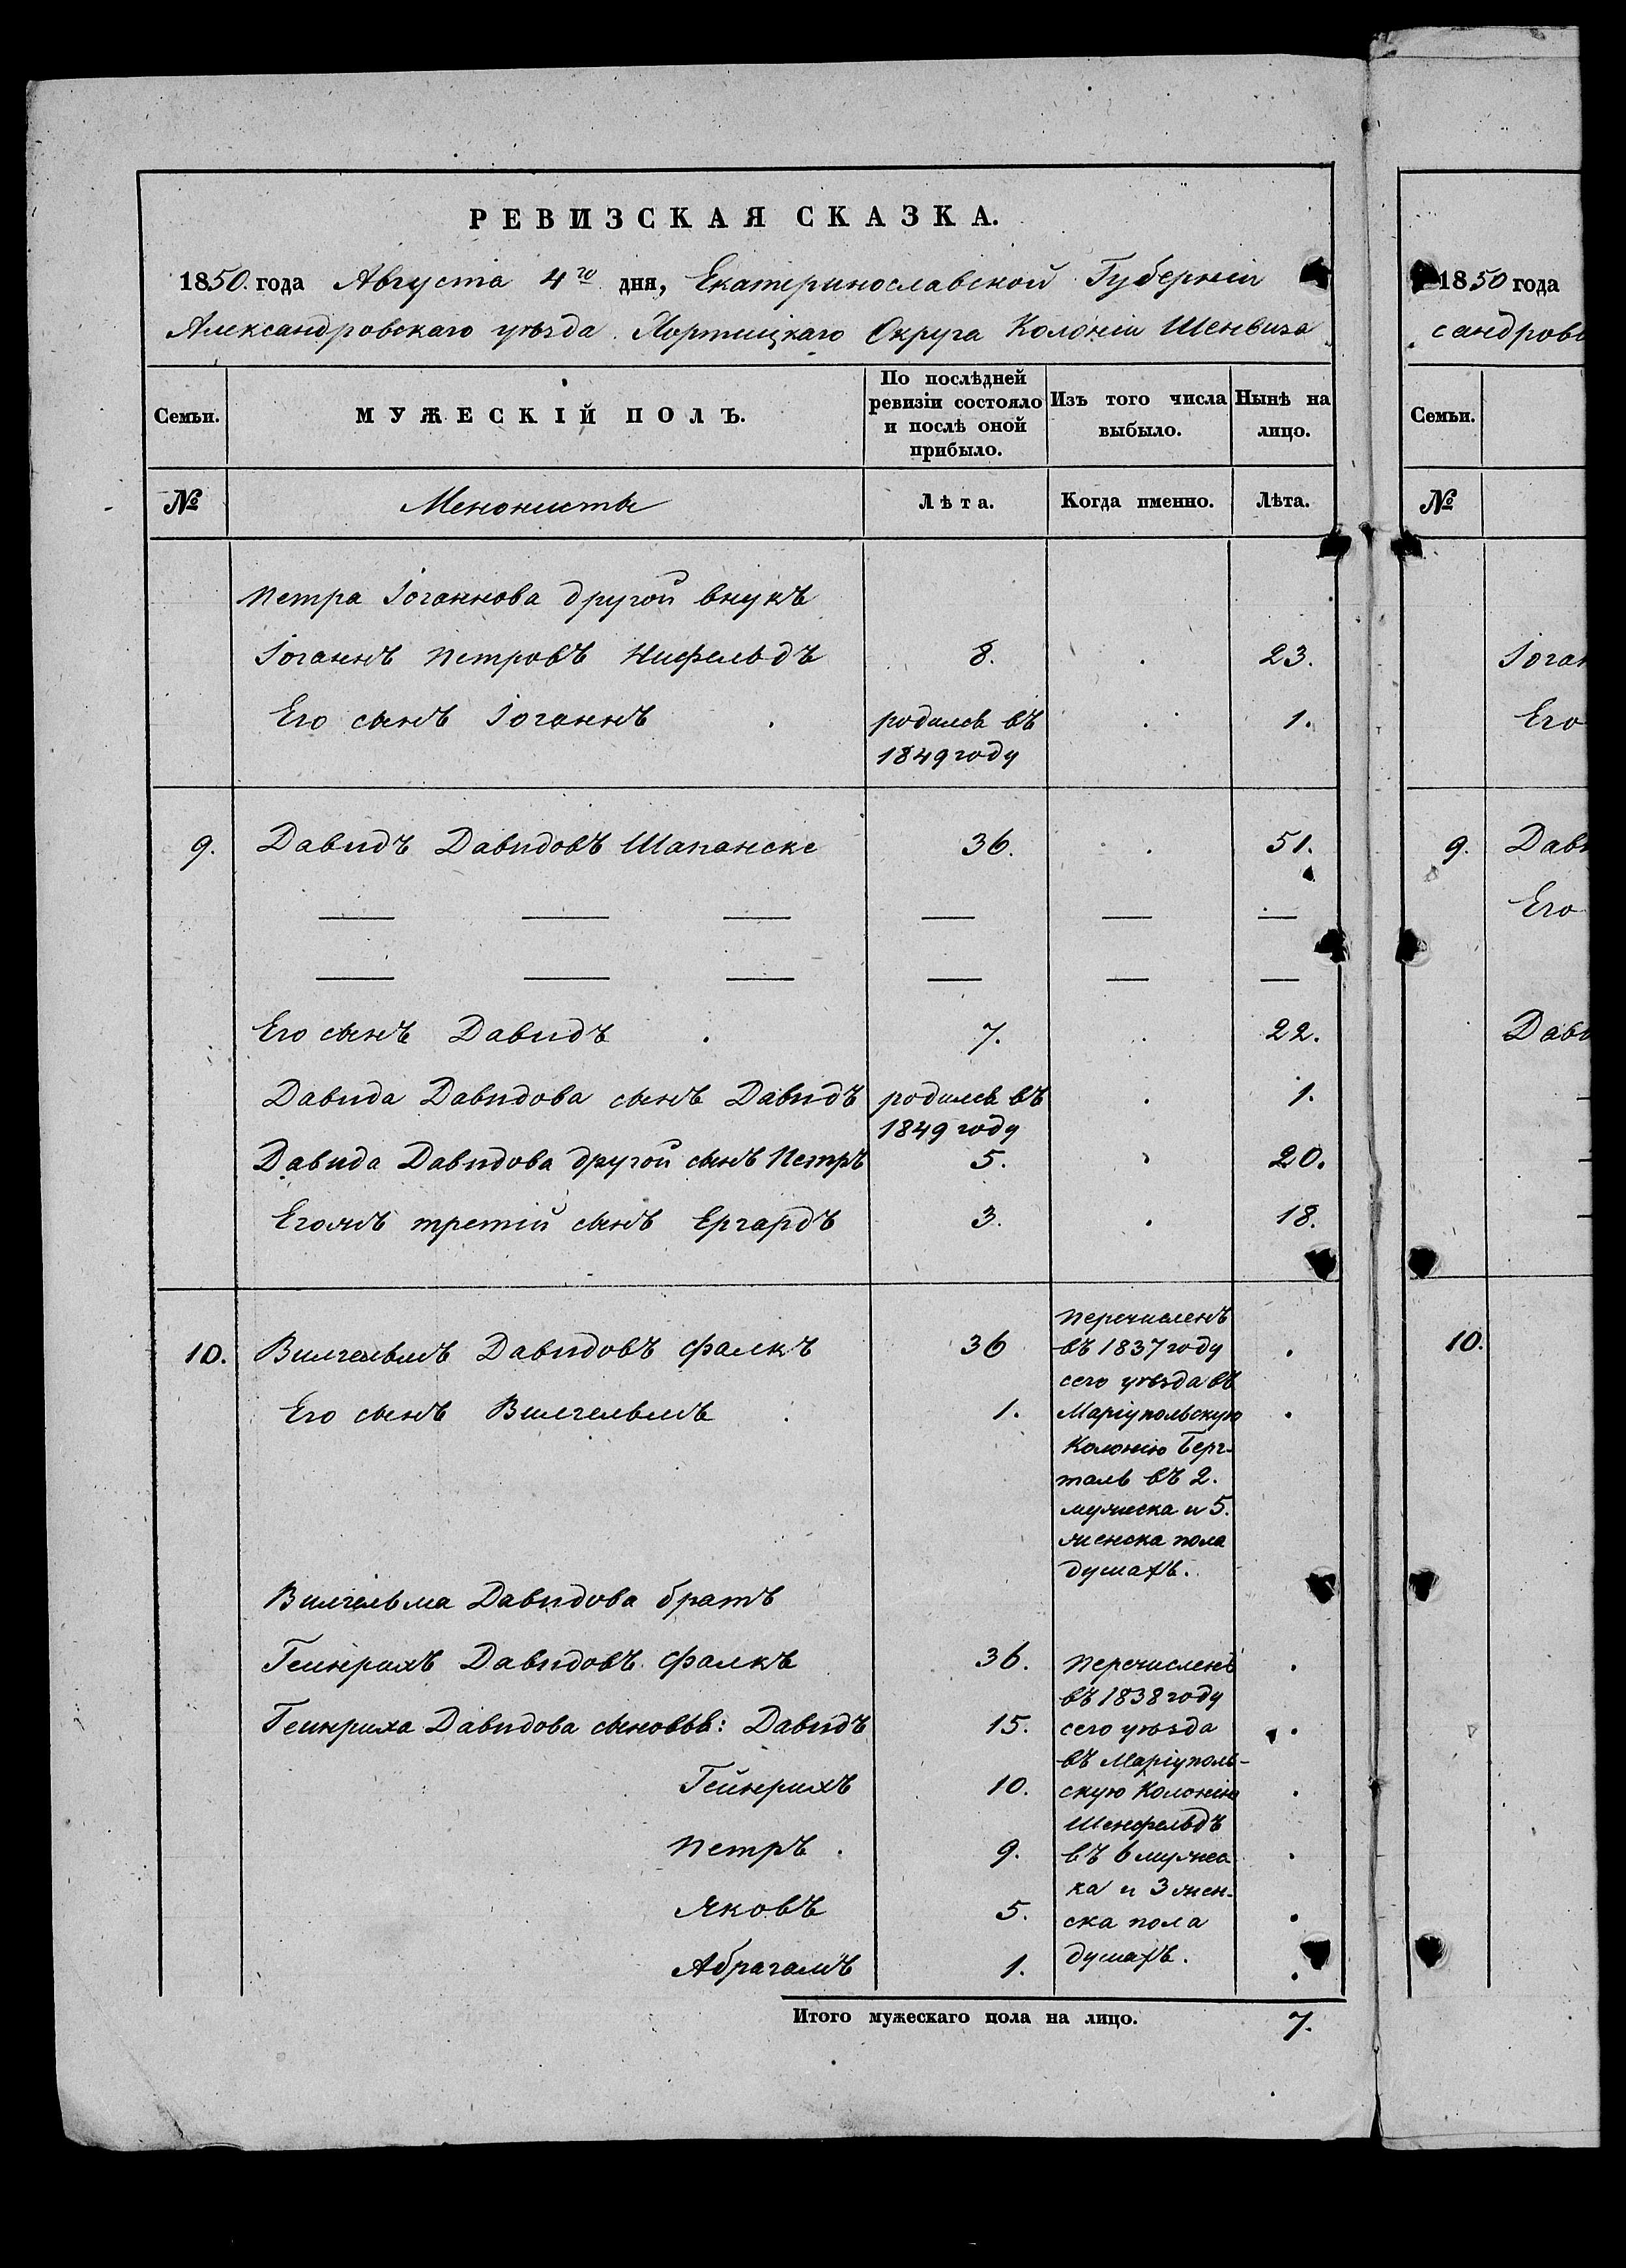 РЕВИЗСКАЯ СКАЗКА.
1850 года Августа 4го дня, Екатеринославской Губерніи
Александровскаго уѣзда Хортицкаго Округа Колоніи Шенвиза
Семьи.
МУЖЕСКІЙ ПОЛЪ.
По послѣдней
ревизіи состояло
и послѣ оной
прибыло.
Изъ того числа
выбыло.
Нынѣ на
лицо.
№
Менонисты
Лѣта.
Когда именно.
Лѣта.
Петра Іоганнова другой внукъ
Іоганнъ Петровъ Нифельдъ 8. 23.
Его сынъ Іоганнъ родился въ 1.
1849 году
9. Давидъ Давидовъ Шапанске 36. 51.
— — — — — —
— — — — — —
Его сынъ Давидъ 7. 22.
Давида Давидова сынъ Давидъ родился въ 1.
1849 году
Давида Давидова другой сынъ Петръ 5. 20.
Егожъ третій сынъ Ергардъ 3. 18.
10. Вилгельмъ Давидовъ Фалкъ 36
Его сынъ Вилгельмъ 1.
Перечисленъ
въ 1837 году
сего уѣзда въ
Маріупольскую
Колонію Берг-
таль въ 2.
мужеска и 5.
женска пола
душахъ.
Вилгельма Давидова братъ
Гейнрихъ Давидовъ Фалкъ 36.
Гейнриха Давидова сыновья: Давидъ 15.
Гейнрихъ 10.
Петръ 9.
Яковъ 5.
Абрагамъ 1.
Перечисленъ
въ 1838 году
сего уѣзда
въ Маріуполь-
скую Колонію
Шенфельдъ
въ 6 мужес
ка и 3 жен-
ска пола
душахъ.
Итого мужескаго пола на лицо. 7.
1850 года
сандровс
Семьи.
№
Іоган
Его
9. Дави
Его
Дави
10.